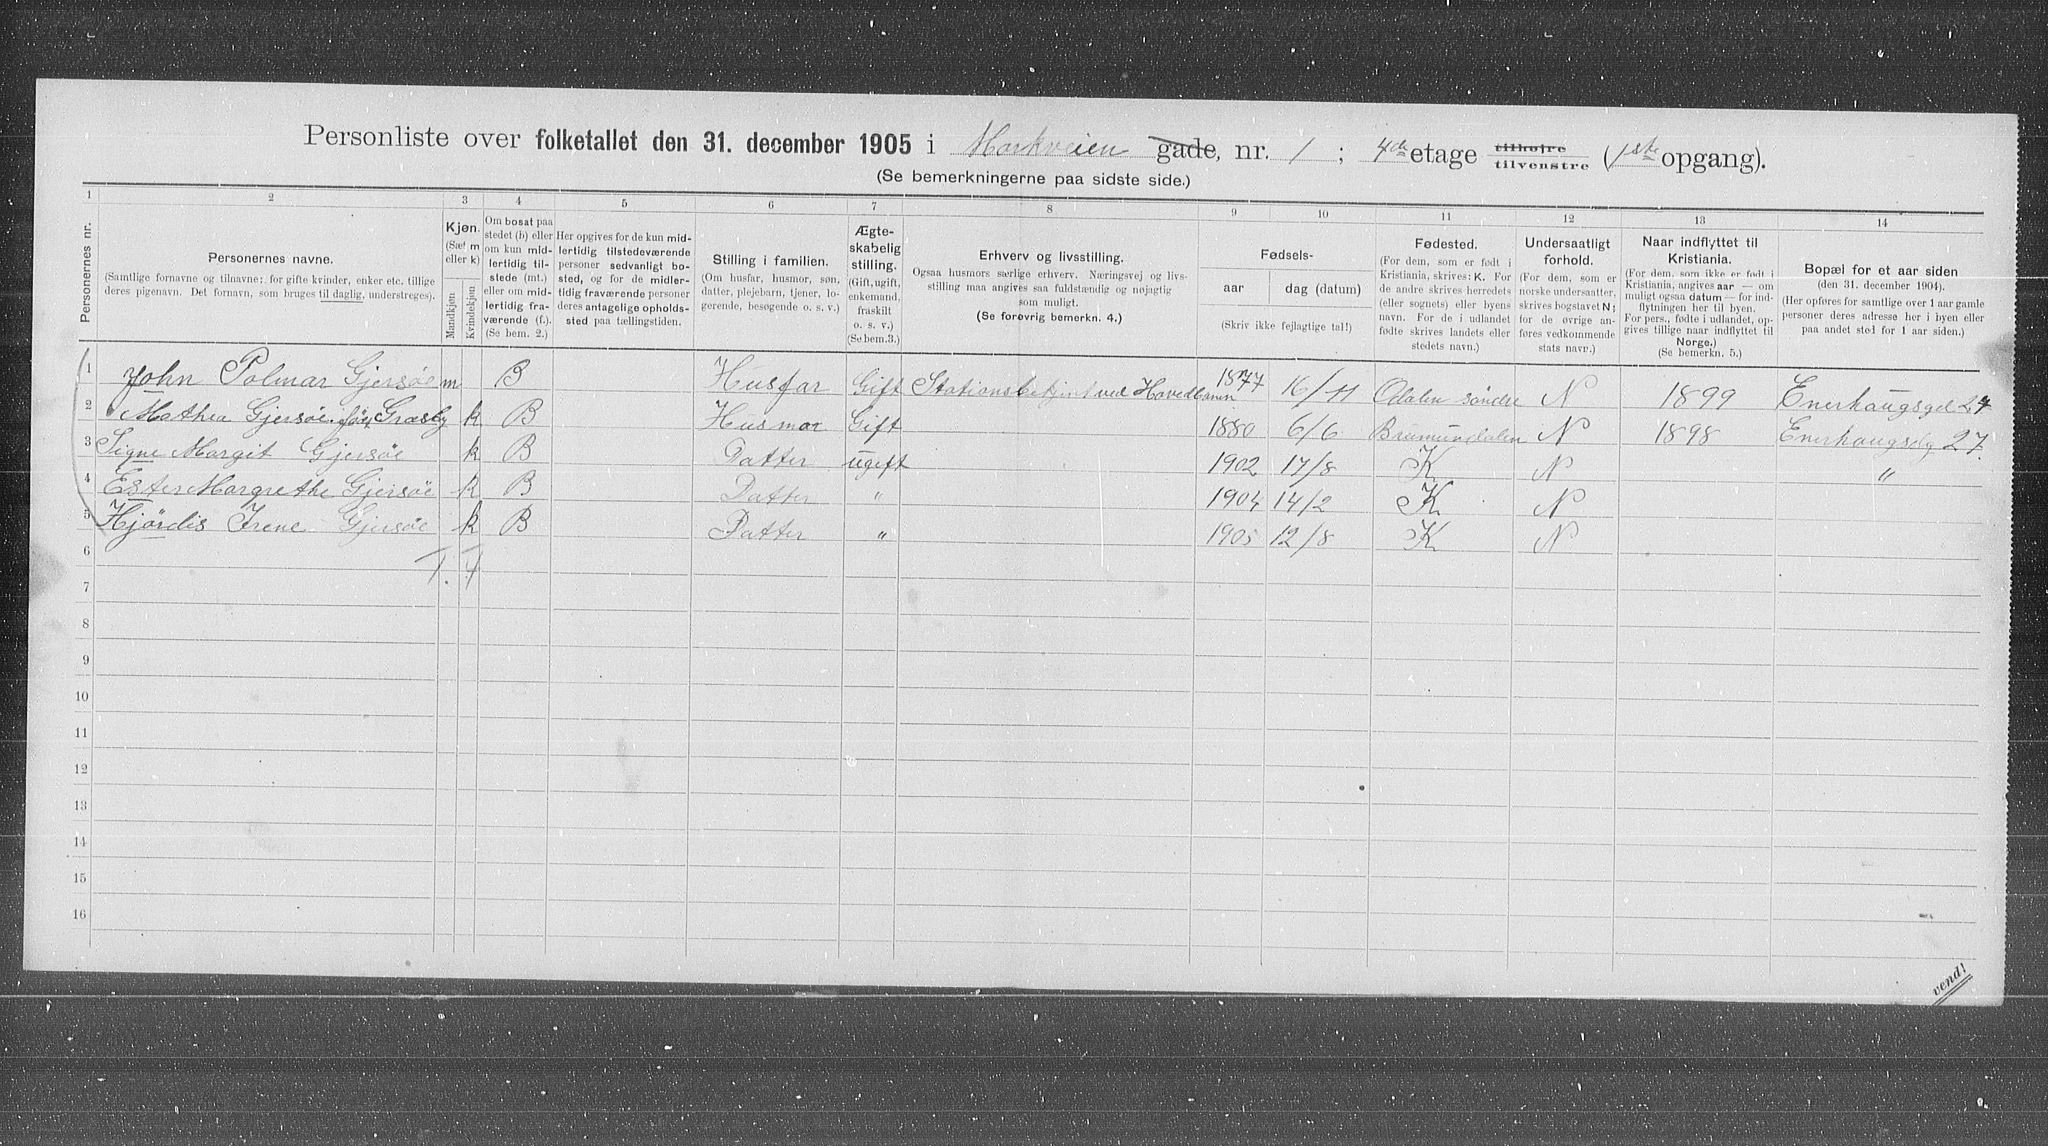 Personliste over folketallet den 31. december 1905 i Markveien gade, nr. 1 ; 4de etage tilhøjre tilvenstre (1ste opgang).
(Se bemerkningerne paa sidste side.)
1 2 3 4 5 6 7 8 9 10 11 12 13 14
Personernes nr.
Personernes navne.
(Samtlige fornavne og tilnavne; for gifte kvinder, enker etc. tillige deres pigenavn. Det fornavn, som bruges til daglig, understreges).
Kjøn.
(Sæt m eller k)
Mandkjøn
Kvindekjøn
Om bosat paa stedet (b) eller om kun midlertidig tilstede (mt.) eller om midlertidig fraværende (f.). (Se bem. 2.)
Her opgives for de kun midlertidig tilstedeværende personer sedvanligt bosted, og for de midlertidig fraværende personer deres antagelige opholdssted paa tællingstiden.
Stilling i familien.
(Om husfar, husmor, søn, datter, plejebarn, tjener, logerende, besøgende o. s. v.)
Ægteskabelig stilling.
(Gift, ugift, enkemand, fraskilt o. s. v.) (Se bem. 3.)
Erhverv og livsstilling.
Ogsaa husmors særlige erhverv. Næringsvej og livsstilling maa angives saa fuldstændig og nøjagtig som muligt.
(Se forøvrig bemerkn. 4.)
Fødsels-
aar
dag (datum)
(Skriv ikke fejlagtige tal!)
Fødested.
(For dem, som er født i Kristiania, skrives: K. For de andre skrives herredets (eller sognets) eller byens navn. For de i udlandet fødte skrives landets eller stedets navn.)
Undersaatligt forhold.
(For dem, som er norske undersaatter, skrives bogstavet N; for de øvrige anføres vedkommende stats navn.)
Naar indflyttet til Kristiania.
(For dem, som ikke er født i Kristiania, angives aar — om muligt ogsaa datum — for indflytningen her til byen. For pers., fødte i udlandet, opgives tillige naar indflyttet til Norge.)
(Se bemerkn. 5.)
Bopæl for et aar siden
(den 31. december 1904).
(Her opføres for samtlige over 1 aar gamle personer deres adresse her i byen eller paa andet sted for 1 aar siden.)
1 John Polmar Gjersøe m B Husfar Gift Stationsbetjent ved Hovedbanen 1877 16/11 Odalen søndre N 1899 Enerhaugsgd 27
2 Mathea Gjersøe født Græsby k B Husmor Gift 1880 6/6 Brumundalen N 1898 Enerhaugsdg 27.
3 Signe Margit Gjersøe k B Datter ugift 1902 17/8 K N "
4 Ester Margrethe Gjersøe k B Datter " 1904 14/2 K N
5 Hjørdis Irene Gjersøe k B Datter " 1905 12/8 K N
6 T. F
7
8
9
10
11
12
13
14
15
16
vend!